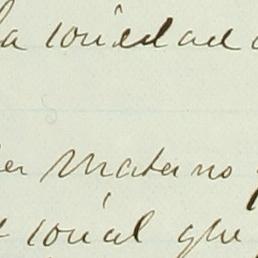 la sociedad
er materno
social que